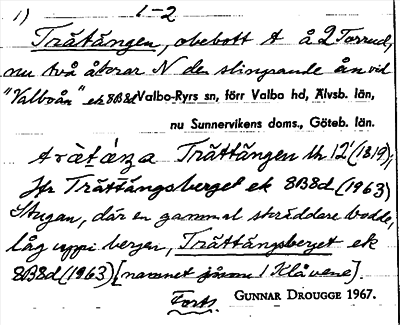 1) 1-2
Trätången, obebott t å 2 Torrud,
nu två åkrar N den slingrande ån vid
"Valboån" ek 8B8d Valbo-Ryrs sn, förr Valbo hd, Älvsb. län,
nu Sunnervikens doms., Göteb. län.
Trättången lh 12' (1819),
Jfr Trättångsberget ek 8B8d (1963)
Stugan, där en gammal skräddare bodde,
låg uppi bergen, Trättångsberget ek
8B8d (1963) [namnet i Klåvene].
Forts. GUNNAR DROUGGE 1967.